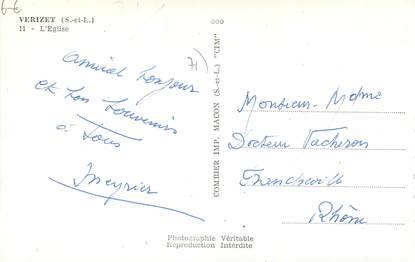 6€
VERIZET (S.-et-L.)
11 - L'Eglise
71
amical bonjour
et bon souvenir
à tous
COMBIER IMP. MACON (S.-et-L.) "CIM"
Monsieur - Mdme
Docteur Vacheron
Francheville
Rhône
Photographie Véritable
Reproduction Interdite